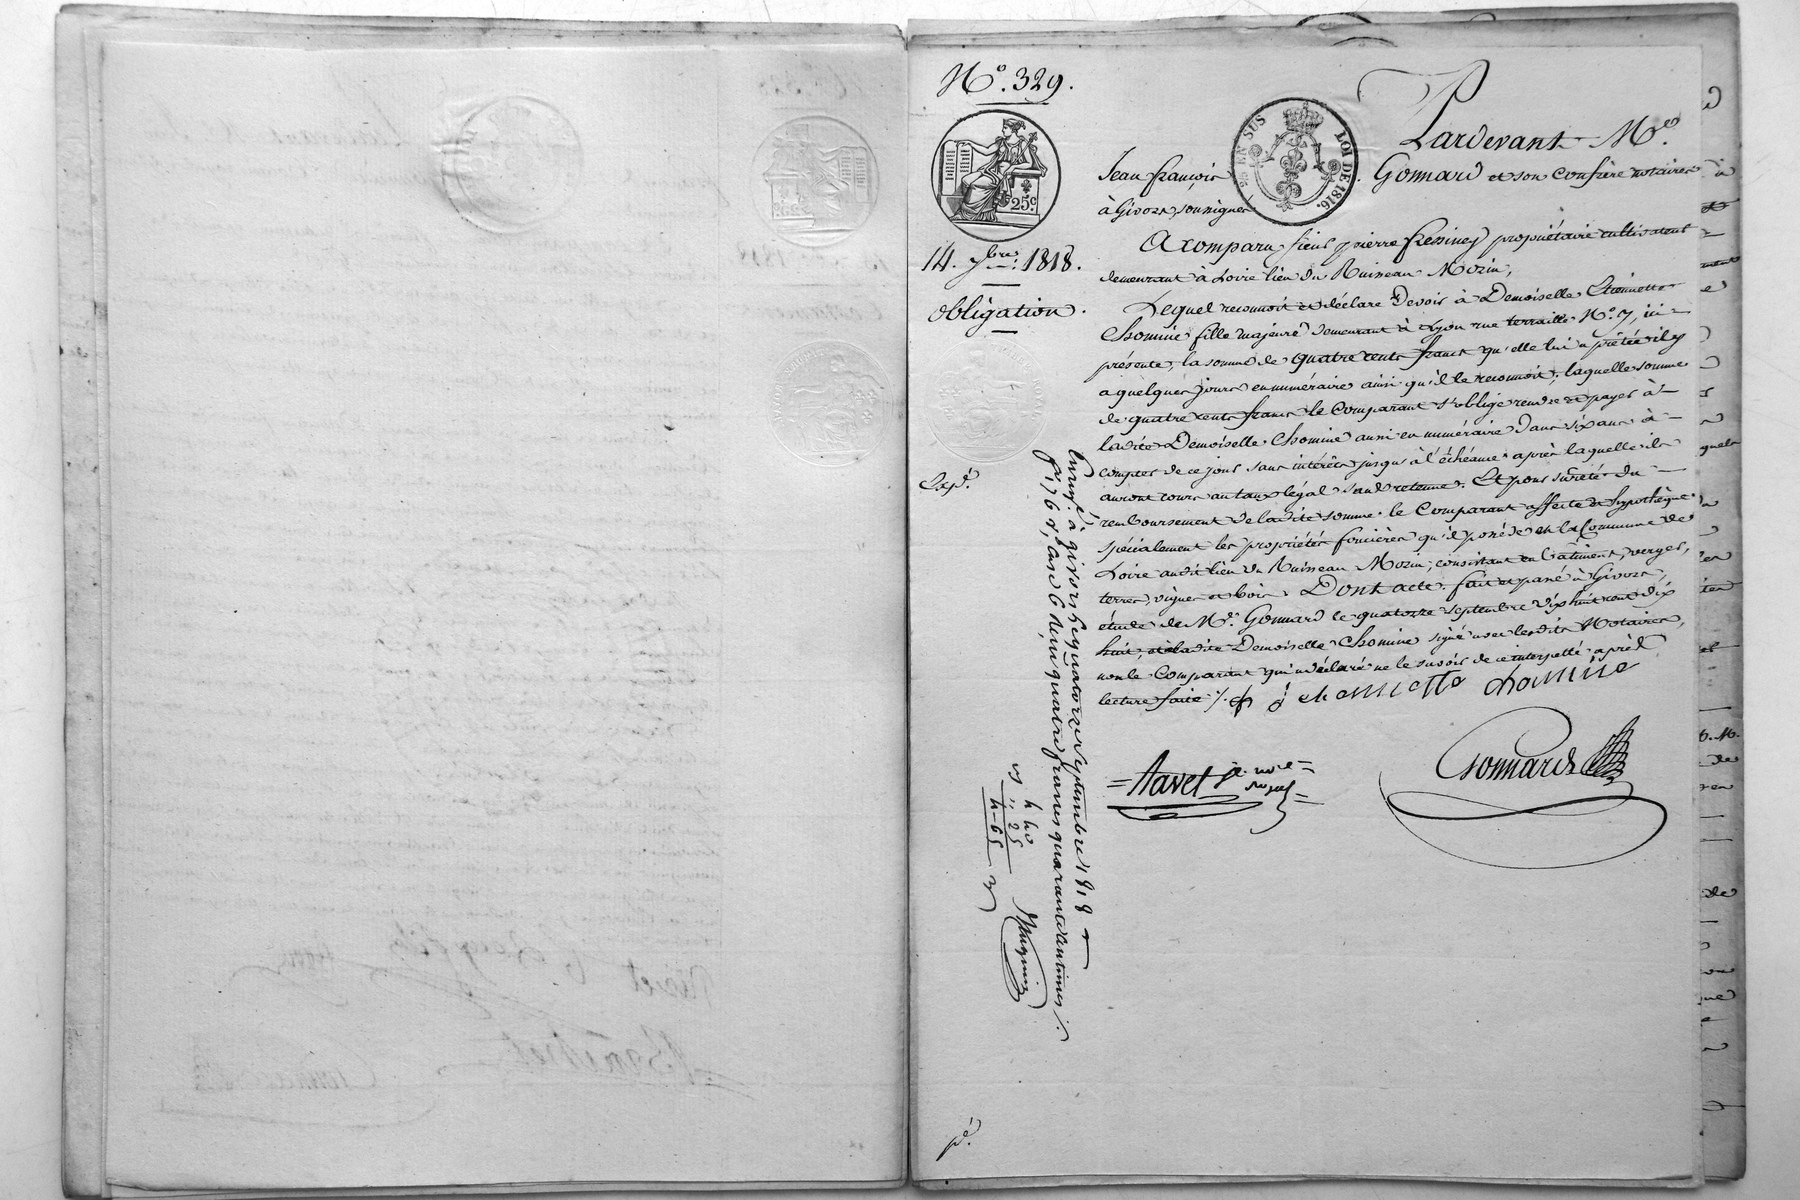 N.º 329.
25 EN SUS
LOI DE 1816.
25c
14. 7bre. 1818.
Obligation.
Expé.
Pardevant Me.
Jean François Gonnard et son Confrère notaires
à Givors, soussignés
A comparu sieur pierre fressiney propriétaire cultivateur
demeurant à Loire lieu du Ruisseau Morin,
Lequel reconnoit et déclare devoir à Demoiselle Etiennette
Chomine fille majeure demeurant à Lyon rue terraille N.º 7, ici
présente, la somme de quatre cents francs qu'elle lui a prêtée il y
a quelques jours en numéraire ainsi qu'il le reconnoit; laquelle somme
de quatre cents francs le Comparant s'oblige rendre et payer à
ladite Demoiselle Chomine aussi en numéraire dans six ans à
compter de ce jour sans intérêts jusqu'à l'échéance après laquelle ils
auront cours au taux légal sans retenue. Et pour sureté du
remboursement de ladite somme le Comparant affecte et hypothèque
spécialement les propriétés foncières qu'il possède en la Commune de
Loire audit lieu du Ruisseau Morin, consistant en bâtiment, verger,
terres, vignes et bois. Dont acte. fait et passé à Givors,
étude de Me. Gonnard le quatorze septembre dix huit cent dix
huit, et ladite Demoiselle Chomine signé avec lesdits Notaires,
non le Comparant qui a déclaré ne le savoir de ce interpellé après
lecture faite ./.
Chomine
Gonnard
à givors le quatorze septembre 1818
f.º 176 r.º case 6 reçu quatre francs quarante centimes ./.
4 40
25
4-65
pé.